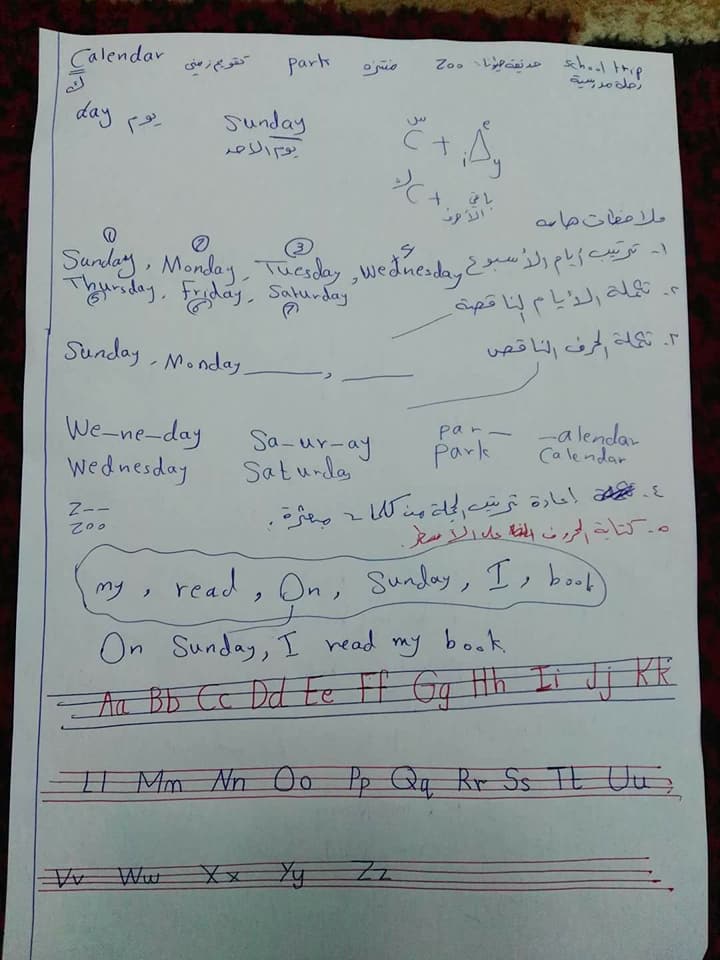 Calendar تقويم زمني park منتزه zoo حديقة حيوانات school trip رحلة مدرسية
ك
day يوم Sunday يوم الاحد
س C + e i y
ك C + باقي الأحرف
ملاحظات هامه
١- ترتيب أيام الأسبوع
① ② ③ 4
Sunday, Monday, Tuesday, Wednesday
Thursday, Friday, Saturday
⑤ ⑥ ⑦
٢- تكملة الأيام الناقصة
٣- تكملة الحرف الناقص
Sunday, Monday ______, _____
We_ne_day Sa_ur_ay par_ _alendar
Wednesday Saturday park Calendar
z__
zoo
٤- اعادة ترتيب الجملة من كلمات مبعثرة.
٥- كتابة الحروف على الأسطر.
my, read, On, Sunday, I, book
On Sunday, I read my book.
Aa Bb Cc Dd Ee Ff Gg Hh Ii Jj Kk
Ll Mm Nn Oo Pp Qq Rr Ss Tt Uu
Vv Ww Xx Yy Zz